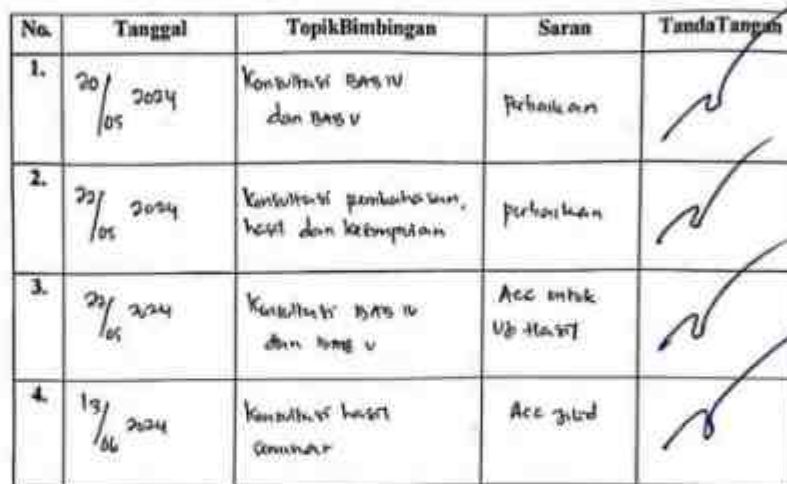 No. Tanggal TopikBimbingan Saran TandaTangan
1. 20/05 2024 Konsultasi BAB IV
dan BAB V
perbaikan
2. 22/05 2024 Konsultasi pembahasan,
hasil dan kesimpulan
perbaikan
3. 22/05 2024 Konsultasi BAB IV
dan BAB V
Acc untuk
Uji Hasil
4. 13/06 2024 Konsultasi hasil
seminar
Acc jilid